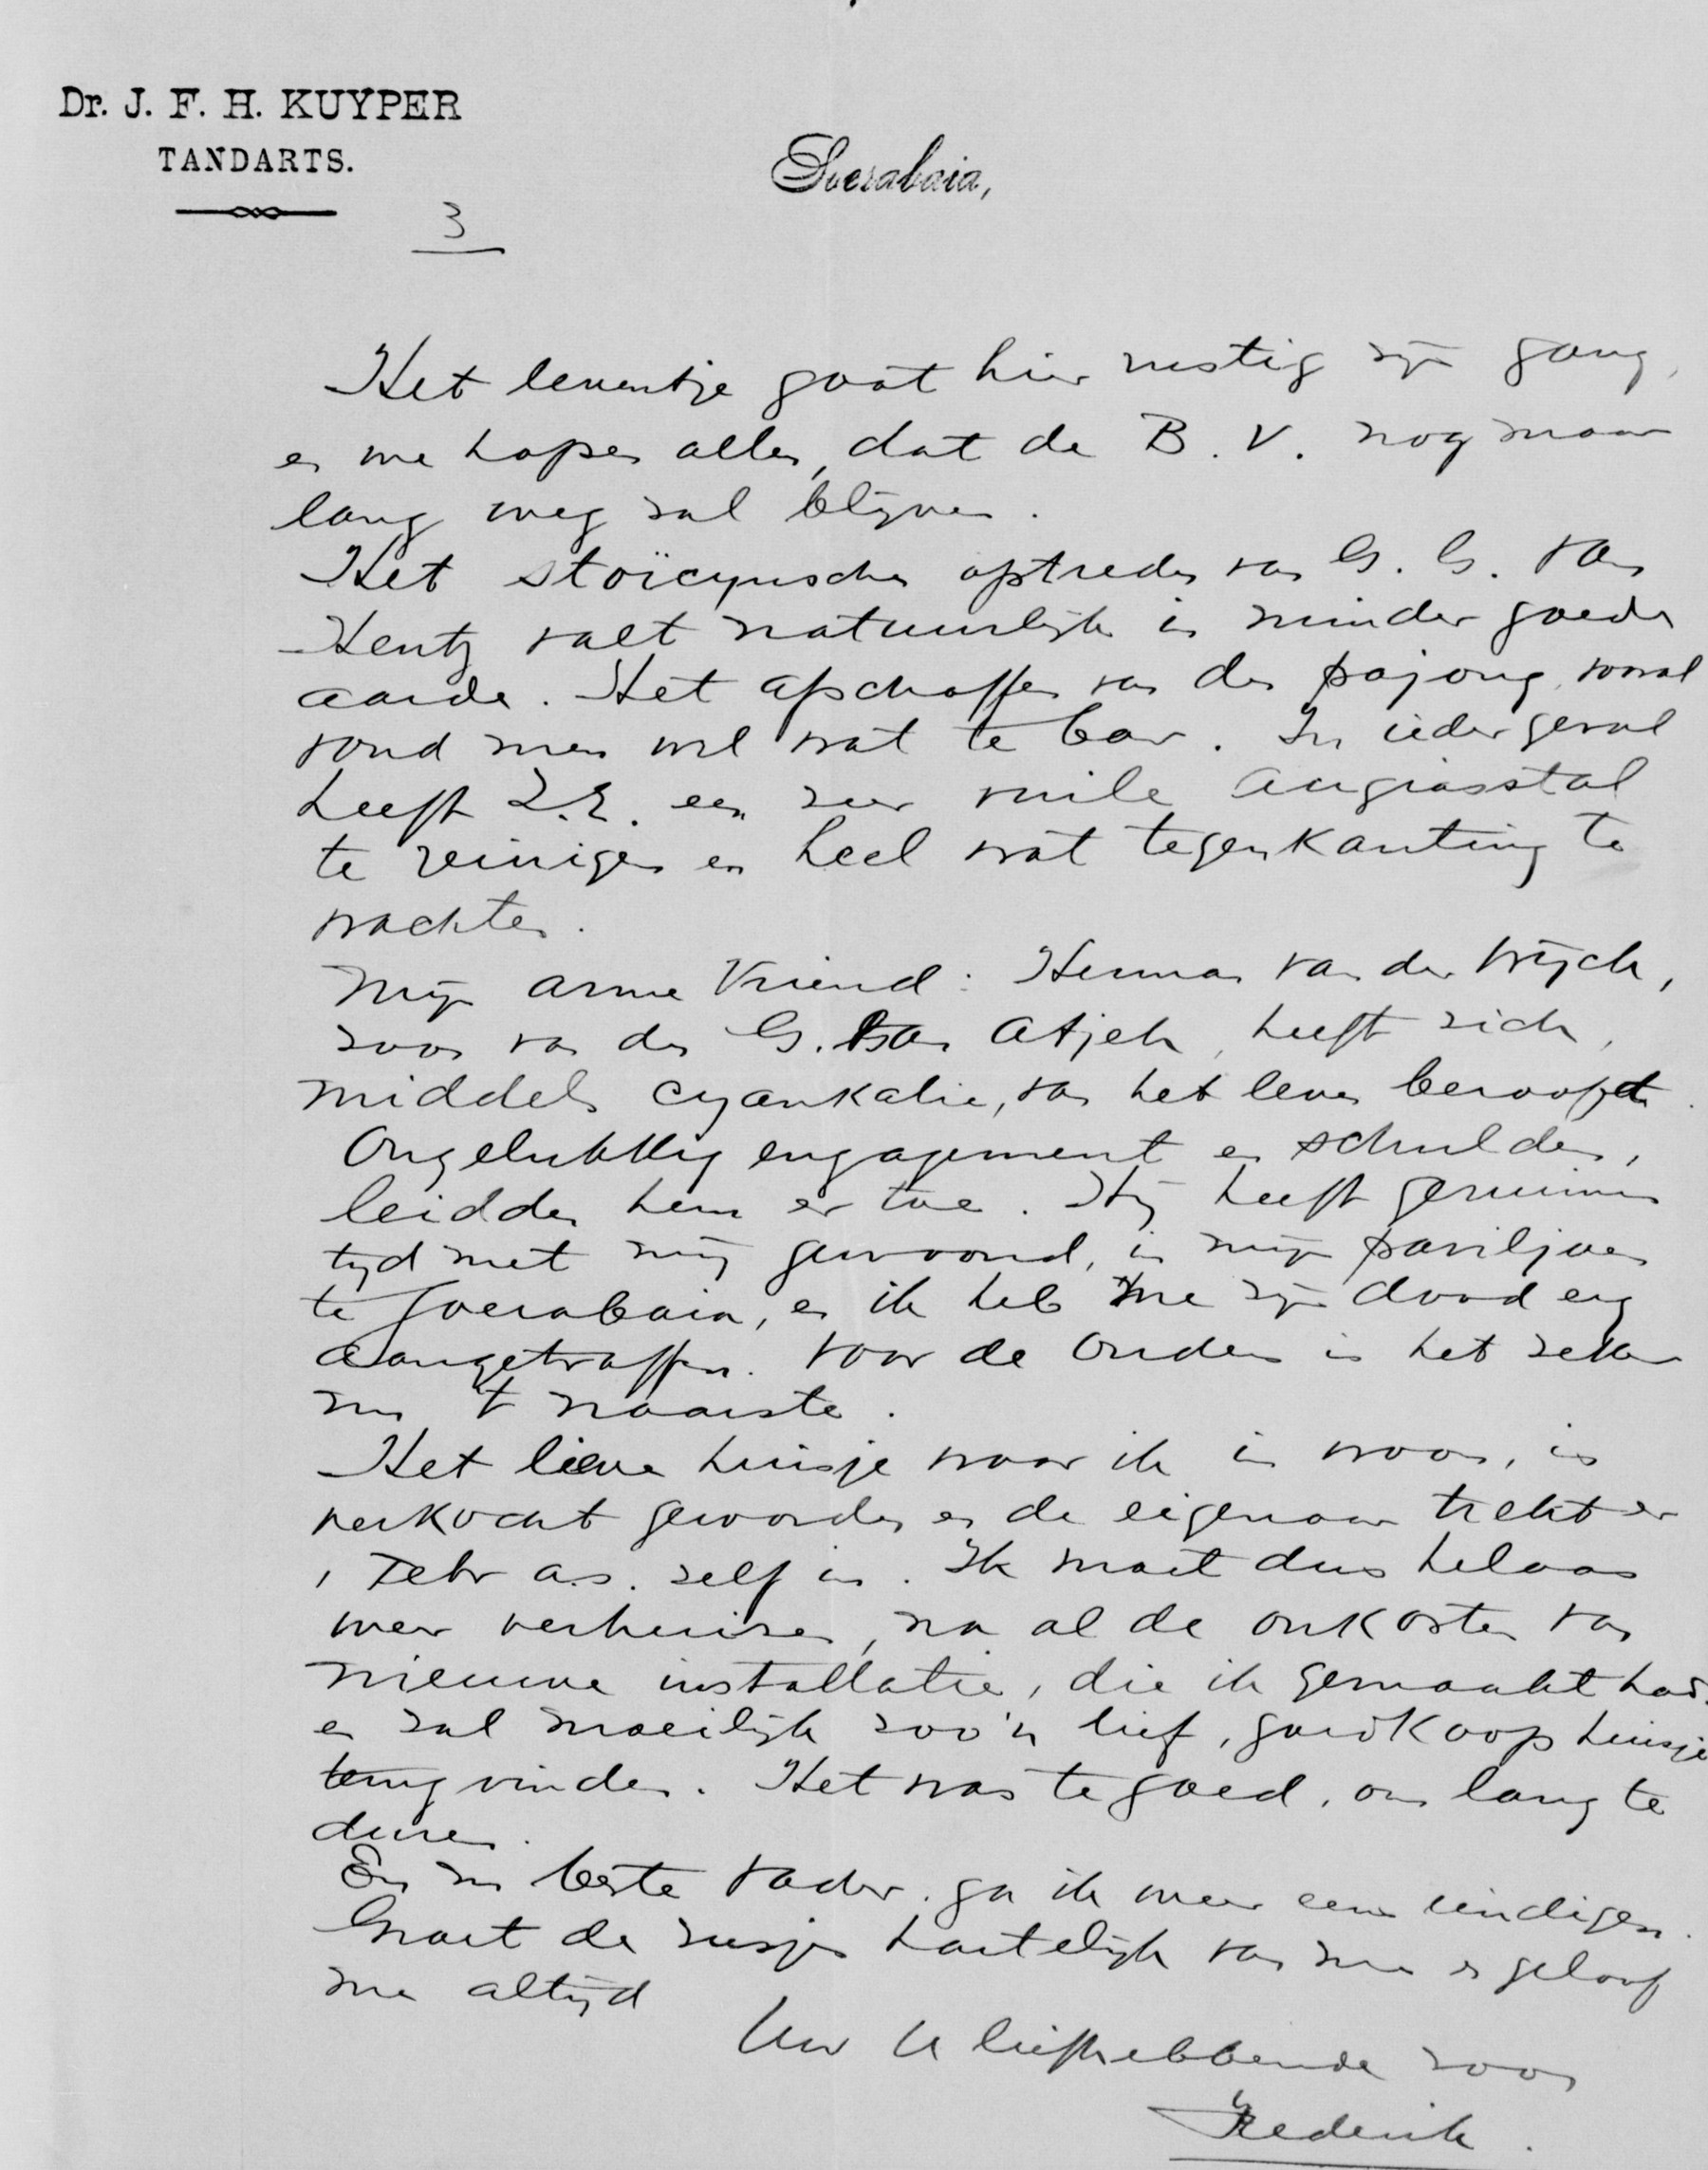 Dr. J. F. H. KUYPER
TANDARTS.
Soerabaia,
3
Het leventje gaat hier rustig zijn gang,
en we hopen allen, dat de B. V. nog maar
lang weg zal blijven.
Het stoïcynsche optreden van G. G. van
Heutz valt natuurlijk in minder goede
aarde. Het afschaffen van den pajong vooral
vond men wel wat te bar. In ieder geval
heeft Z.E. een zeer vuile Augiasstal
te reinigen en heel wat tegenkanting te
wachten.
Mijn arme Vriend: Herman van der Wijck,
zoon van den G. van Atjeh, heeft zich,
middels cyankalie, van het leven beroofd.
Ongelukkig engagement en schulden,
leidden hem er toe. Hij heeft geruimen
tijd met mij gewoond, in mijn paviljoen
te Soerabaia, en ik heb me zijn dood erg
aangetroffen. Voor de Ouders is het zeker
nu 't naarste.
Het lieve huisje waar ik in woon, is
verkocht geworden en de eigenaar trekt er
1 Febr a.s. zelf in. Ik moet dus helaas
weer verhuizen, na al de onkosten van
nieuwe installatie, die ik gemaakt had.
en zal moeilijk zoo'n lief, goedkoop huisje
terug vinden. Het was te goed, om lang te
duren.
En nu beste Vader, ga ik weer eens eindigen.
Groet de zusjes hartelijk van me en geloof
me altijd
Uw U liefhebbende zoon
Frederik.